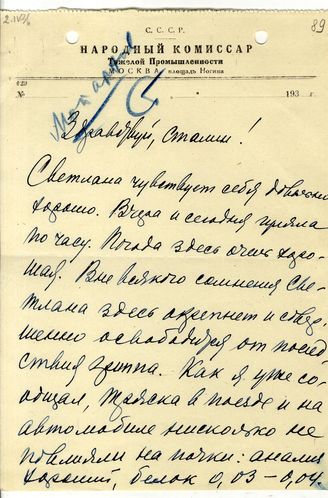 2.IV36
89
С. С. С. Р.
НАРОДНЫЙ КОМИССАР
Тяжелой Промышленности
МОСКВА, площадь Ногина
193 г.
Мой архив
Здравствуй, Сталин!
Светлана чувствует себя довольно
хорошо. Вчера и сегодня гуляла
по часу. Погода здесь очень хоро-
шая. Вне всякого сомнения Све-
тлана здесь окрепнет и совер-
шенно освободится от послед-
ствия гриппа. Как я уже со-
общал, тряска в поезде и на
автомобиле нисколько не
повлияли на почки: анализ
хороший, белок 0,03 – 0,04.